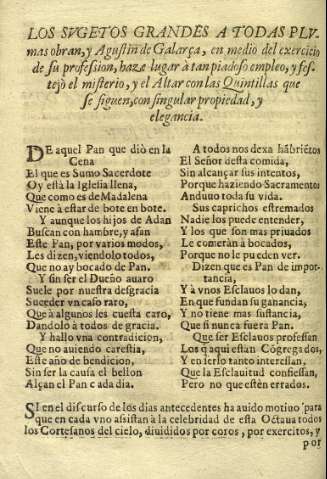 LOS SVGETOS GRANDES A TODAS PLV-
mas obran, y Agustin de Galarça, en medio del exercicio
de su profession, haze lugar à tan piadoso empleo, y fes-
tejò el misterio, y el Altar con las Quintillas que
se siguen, con singular propiedad, y
elegancia.
DE aquel Pan que diò en la
Cena
El que es Sumo Sacerdote
Oy està la Iglesia llena,
Que como es de Madalena
Viene à estar de bote en bote.
Y aunque los hijos de Adan
Buscan con hambre, y afan
Este Pan, por varios modos,
Les dizen, viendolo todos,
Que no ay bocado de Pan.
Y sin ser el Dueño auaro
Suele por nuestra desgracia
Suceder vn caso raro,
Que à algunos les cuesta caro,
Dandolo à todos de gracia.
Y hallo vna contradicion,
Que no auiendo carestia,
Este año de bendicion,
Sin ser la causa el bellon
Alçan el Pan cada dia.
A todos nos dexa hãbriétos
El Señor desta comida,
Sin alcançar sus intentos,
Porque haziendo Sacramentos
Anduuo toda su vida.
Sus caprichos estremados
Nadie los puede entender,
Y los que son mas priuados
Le comeràn à bocados,
Porque no le pueden ver.
Dizen que es Pan de impor-
tancia,
Y à vnos Esclauos lo dan,
En que fundan su ganancia,
Y no tiene mas sustancia,
Que si nunca fuera Pan.
Que ser Esclauos professan
Los q̃ aqui estan Cõgregados,
Y en serlo tanto interessan,
Que la Esclauitud confiessan,
Pero no que estèn errados.
SI en el discurso de los dias antecedentes ha auido motiuo para
que en cada vno assistan à la celebridad de esta Octaua todos
los Cortesanos del cielo, diuididos por coros, por exercitos, y
por